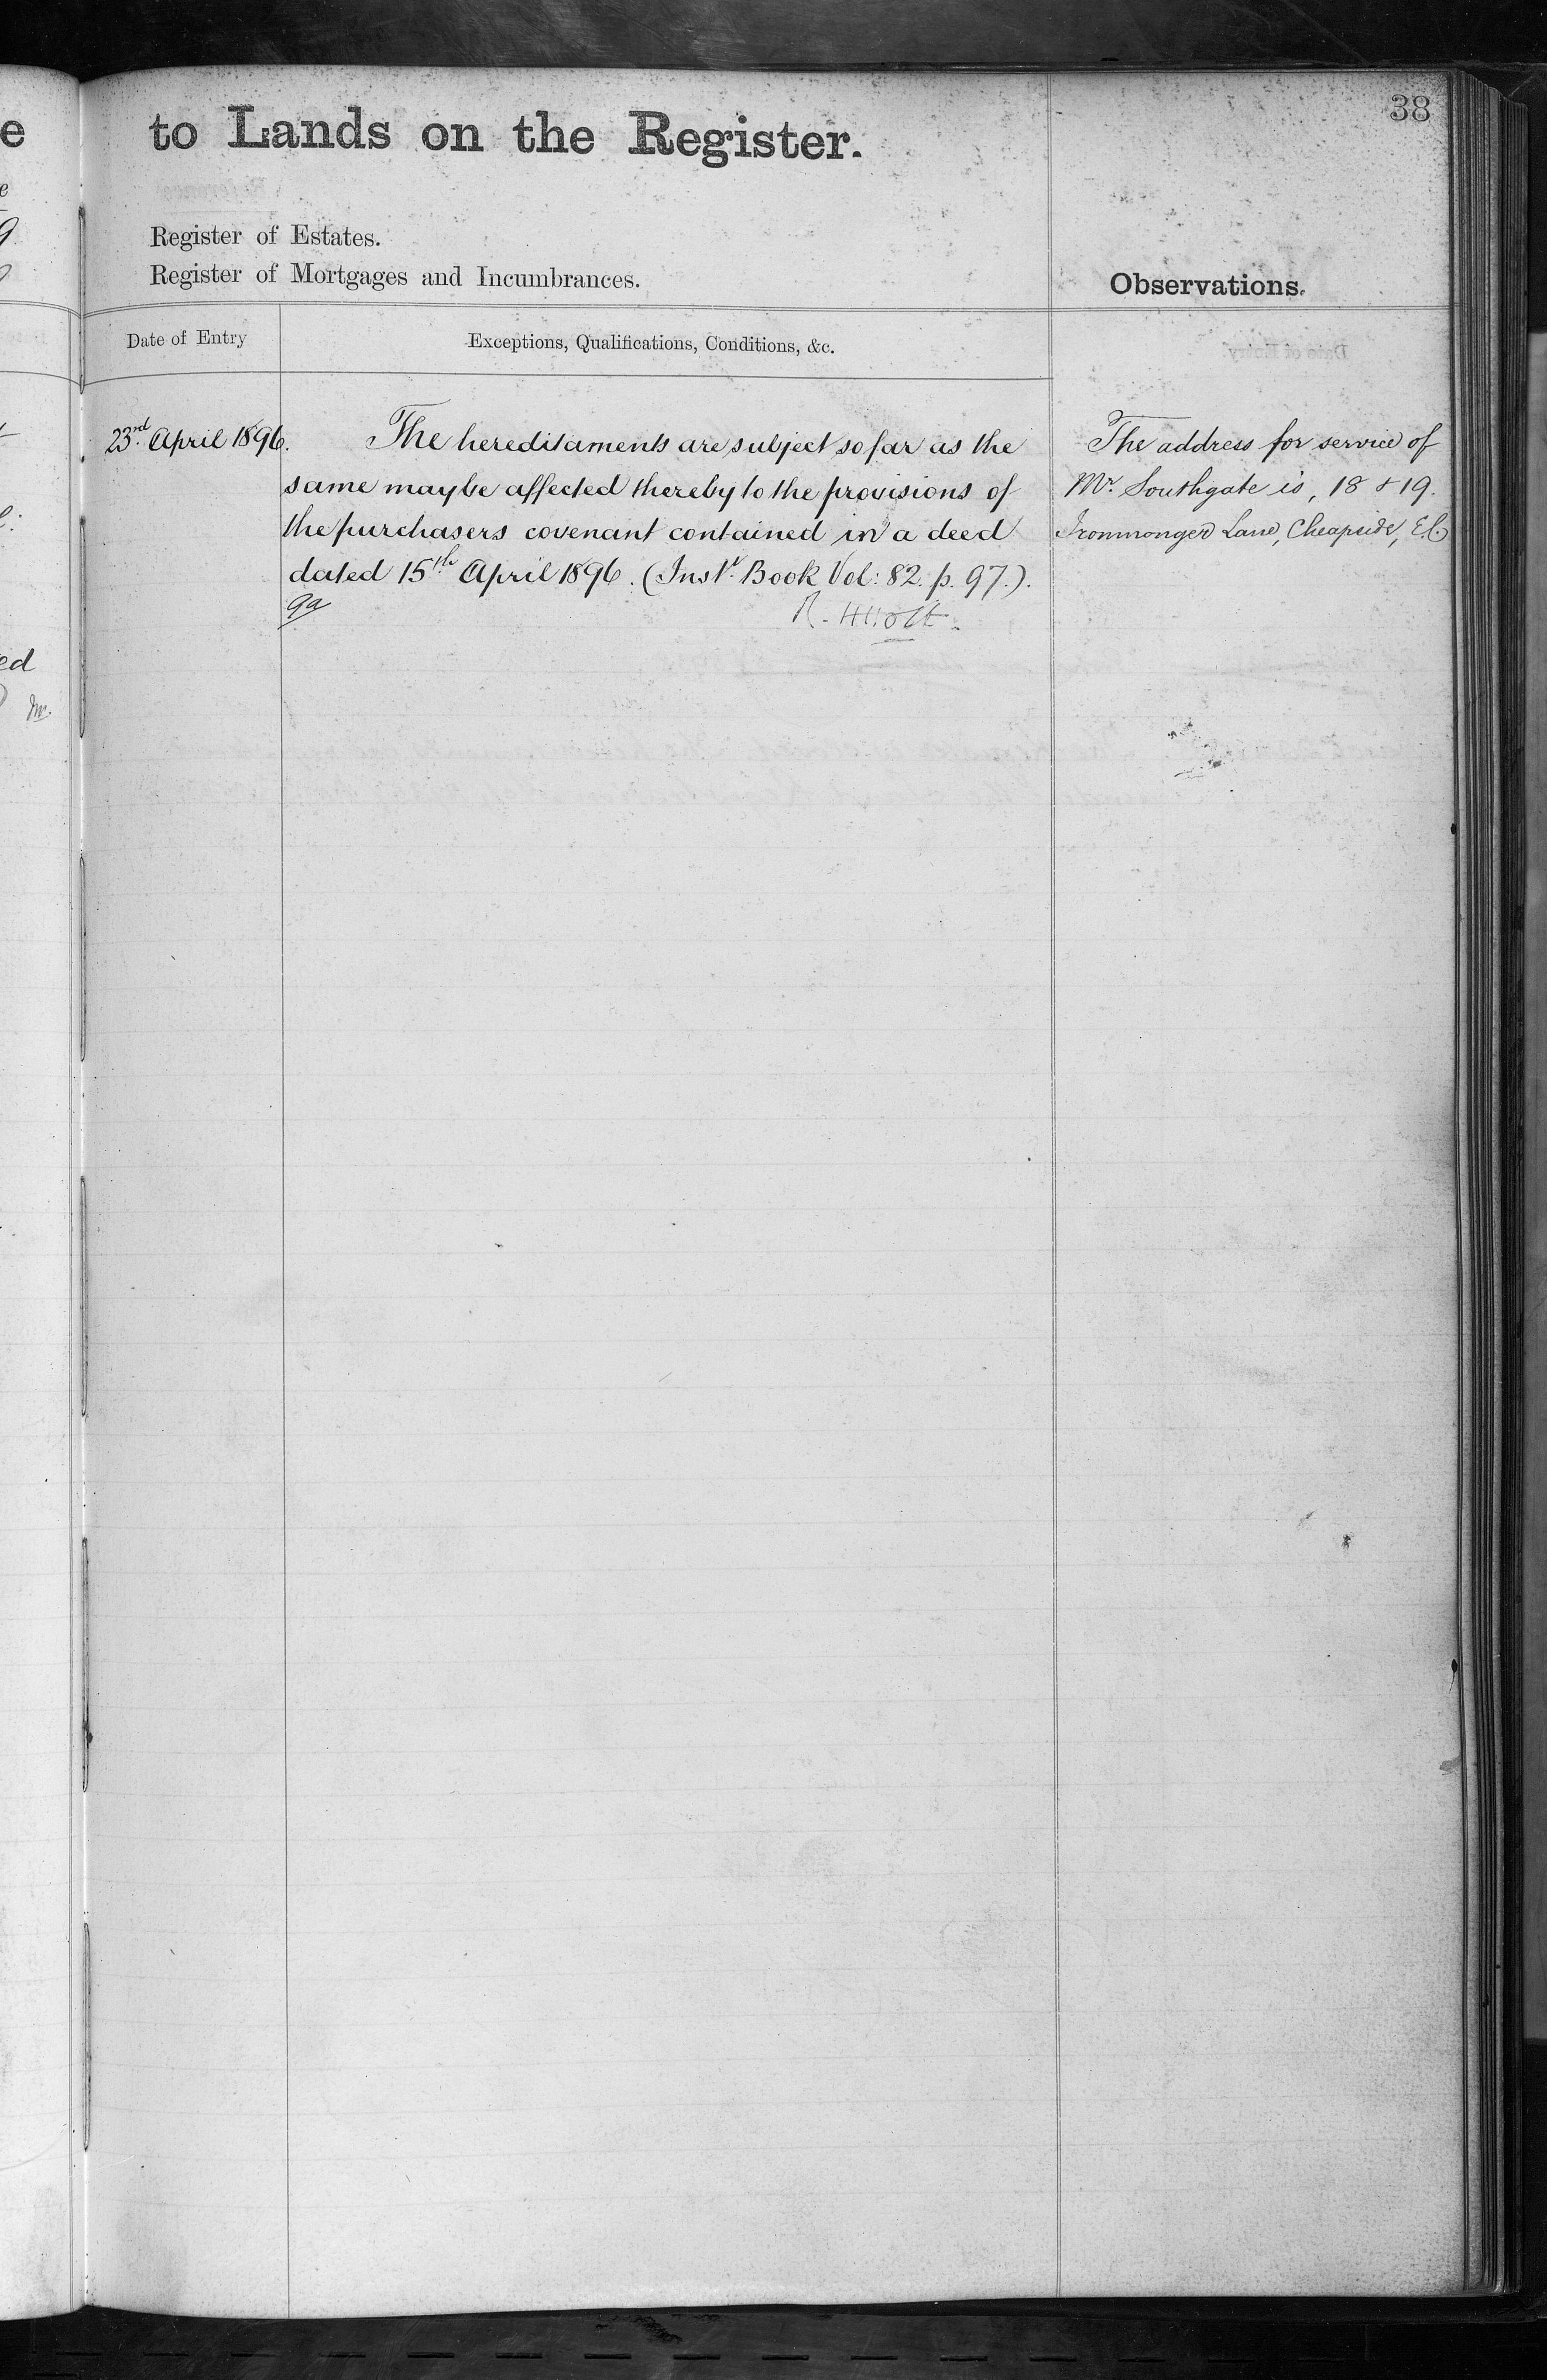 38
to Lands on the Register.
Register of Estates.
Register of Mortgages and Incumbrances.
Observations.
Date of Entry
Exceptions, Qualifications, Conditions, &c.
23rd April 1896.
The hereditaments are subject so far as the
same may be affected thereby to the provisions of
the purchasers covenant contained in a deed
dated 15th April 1896. (Inst. Book Vol: 82. p. 97.).
The address for service of
Mr. Southgate is, 18 & 19.
Ironmonger Lane, Cheapside, E.C.